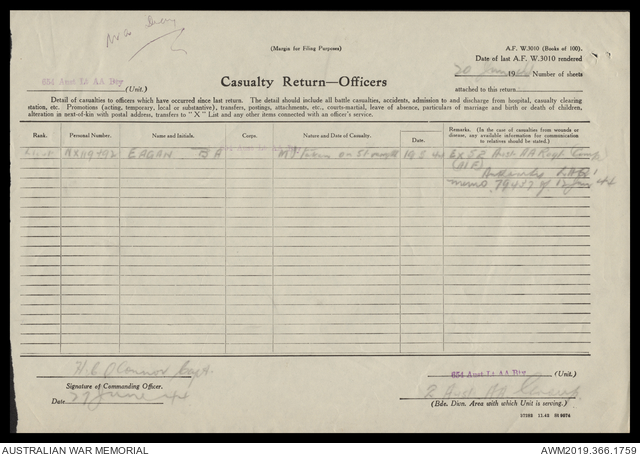 (Margin for Filing Purposes)
A.F. W.3010 (Books of 100).
Date of last A.F. W.3010 rendered
20 June 1944 Number of sheets
654 Aust Lt AA Bty
(Unit.)
Casualty Return—Officers
attached to this return:
Detail of casualties to officers which have occurred since last return. The detail should include all battle casualties, accidents, admission to and discharge from hospital, casualty clearing
station, etc. Promotions (acting, temporary, local or substantive), transfers, postings, attachments, etc., courts-martial, leave of absence, particulars of marriage and birth or death of children,
alteration in next-of-kin with postal address, transfers to "X" List and any other items connected with an officer's service.
Rank. Personal Number. Name and Initials. Corps. Nature and Date of Casualty. Date. Remarks. (In the case of casualties from wounds or
disease, any available information for communication
to relatives should be stated.)
NX119492 EAGAN B A M/I Taken on Strength 19 5 44 Ex 52 Aust AA Regt
(AIF)
memo 79447 of 44
H. C. O'Connor Capt.
Signature of Commanding Officer.
Date 27 June 44
654 Aust Lt AA Bty (Unit.)
2 Aust AA Group
(Bde. Divn. Area with which Unit is serving.)
AUSTRALIAN WAR MEMORIAL
AWM2019.366.1759